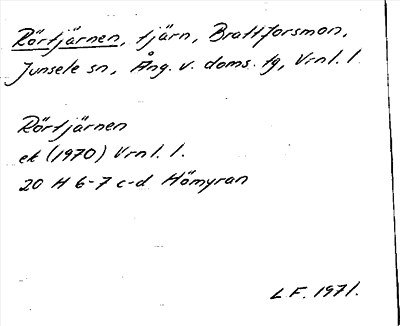 Rörtjärnen, tjärn, Brattforsmon,
Junsele sn, Ång. v. doms. tg, Vrnl. l.
Rörtjärnen
ek (1970) Vrnl. l.
20 H 6-7 c-d Hömyran
L F. 1971.